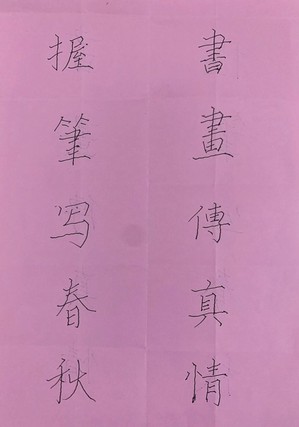 書畫傳真情
握筆写春秋